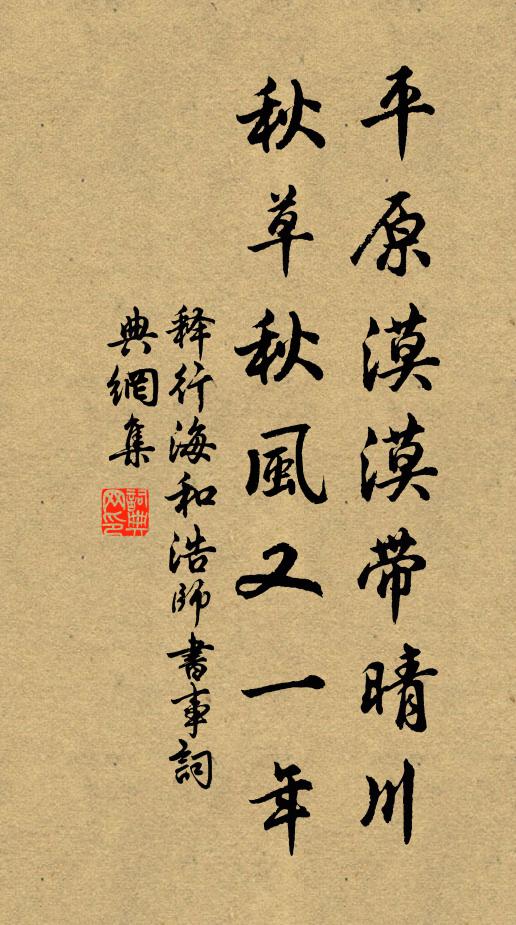 平原漠漠带晴川
秋草秋風又一年
释行海和浩师書事詞
典網集
詞典網印